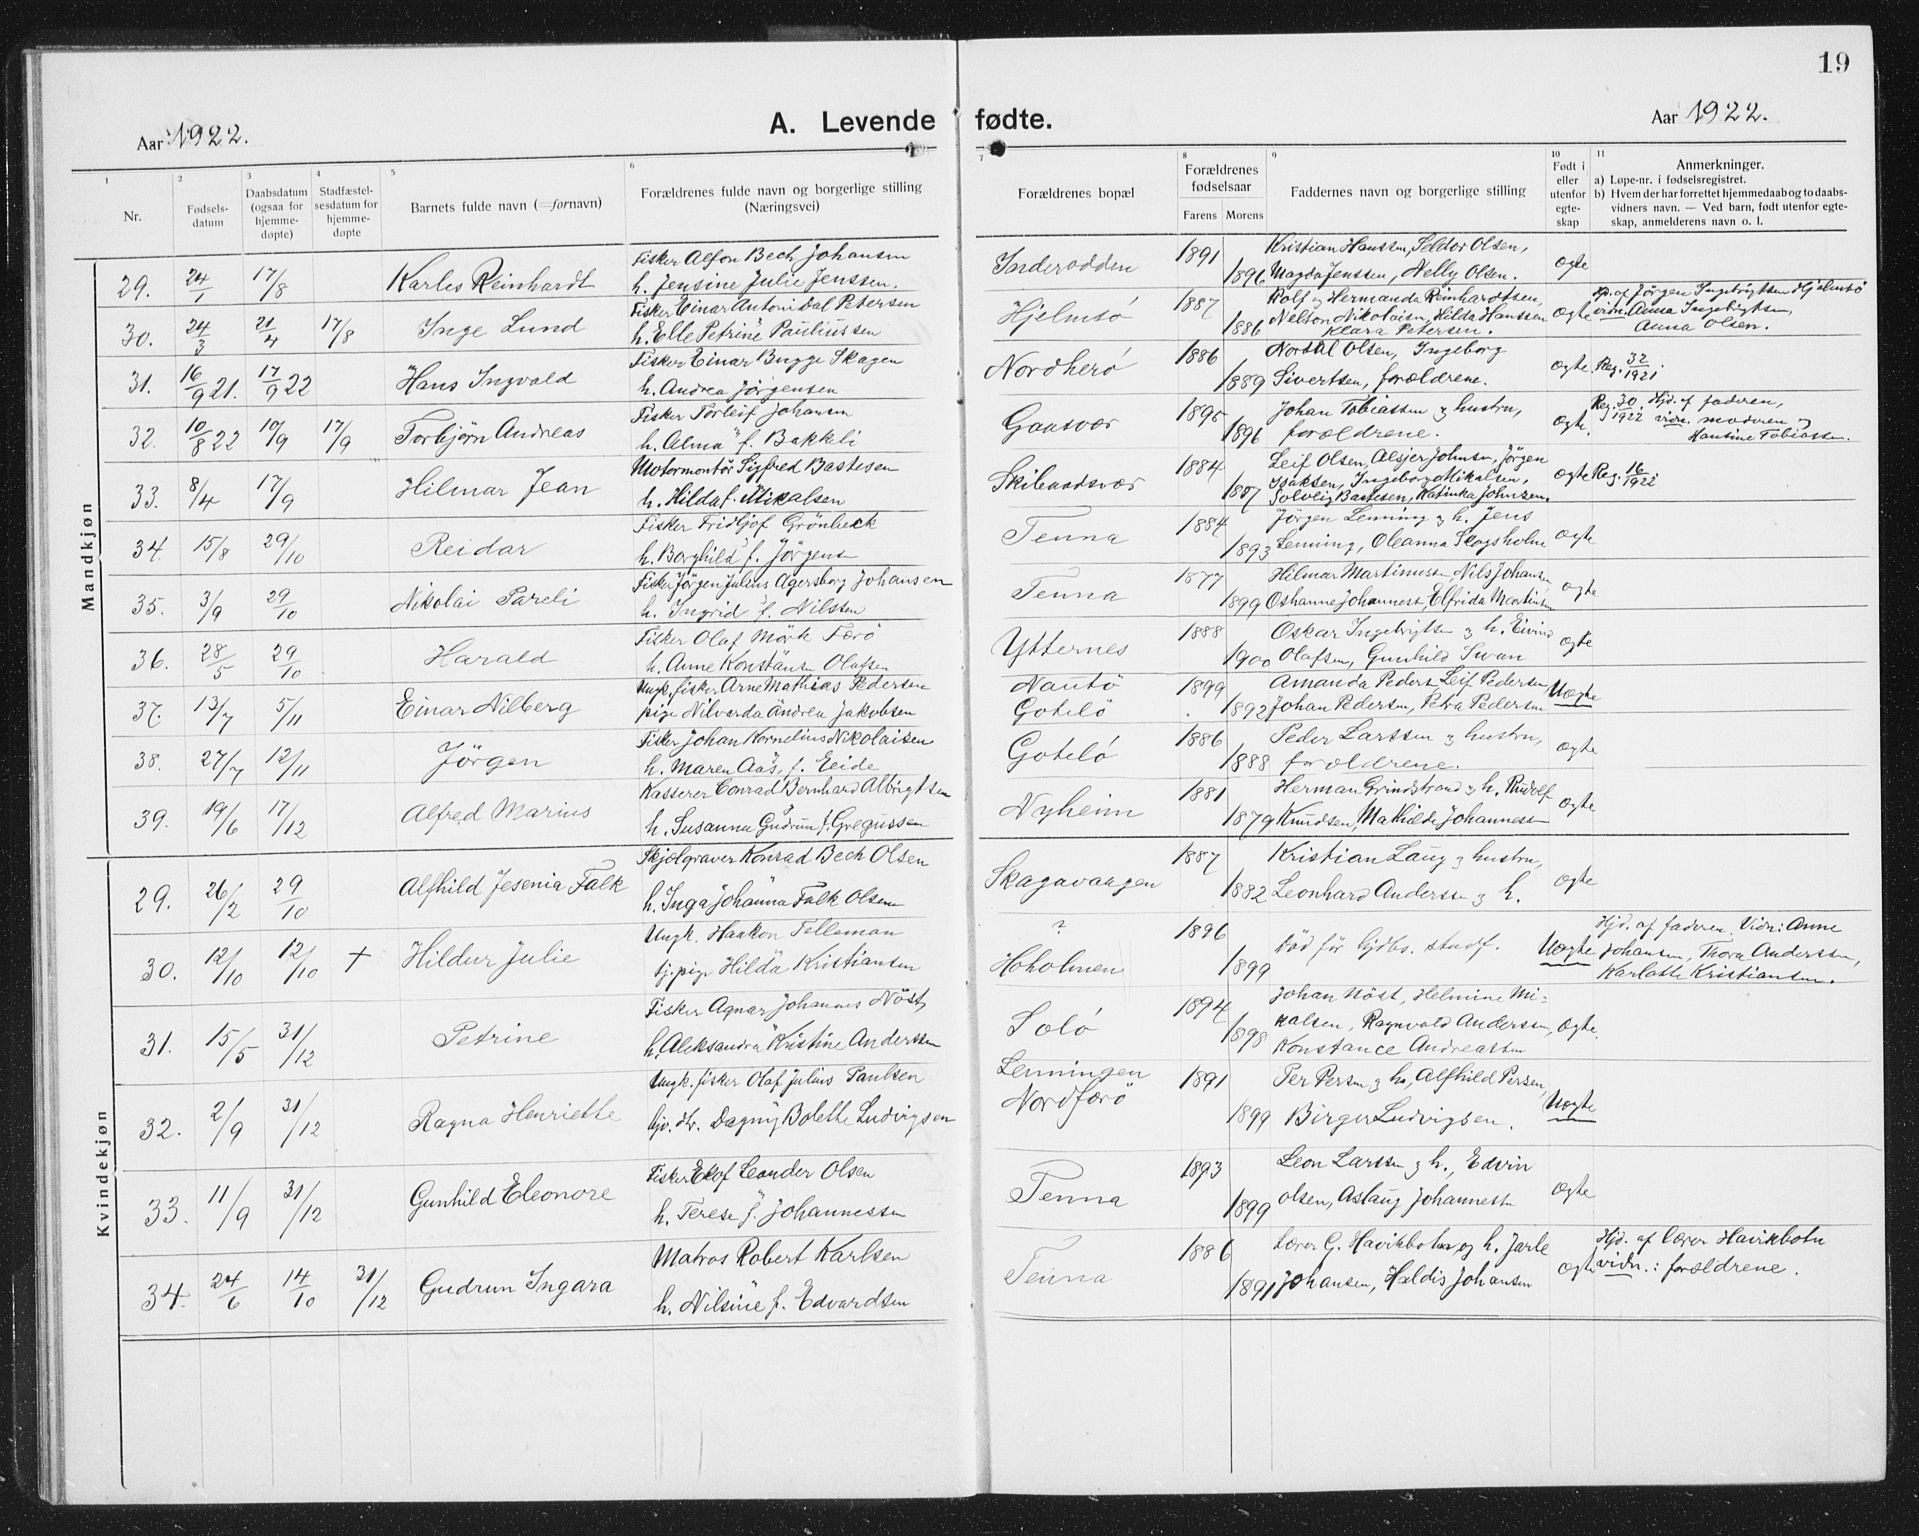 19
Aar 1922.
A. Levende fødte.
Aar 1922.
1 2 3 4 5 6 7 8 9 10 11
Nr.
Fødsels-
datum
Daabsdatum
(ogsaa for
hjemme-
døpte)
Stadfæstel-
sesdatum for
hjemme-
døpte
Barnets fulde navn (=fornavn)
Forældrenes fulde navn og borgerlige stilling
(Næringsvei)
Forældrenes bopæl
Forældrenes
fødselsaar
Farens Morens
Faddernes navn og borgerlige stilling
Født i
eller
utenfor
egte-
skap
Anmerkninger.
a) Løpe-nr. i fødselsregistret.
b) Hvem der har forrettet hjemmedaab og to daabs-
vidners navn. — Ved barn, født utenfor egte-
skap, anmelderens navn o. l.
Mandkjøn
Fisker Alfon Bech Johansen 1891 Kristian Hanssen, Seldor Olsen,
29. 24/1 17/8 Karles Reinhardt h. Jensine Julie Jenssen. Inderodden 1896 Magda Jenssen, Nelly Olsen. ogte
Fisker Einar Antoni Dal Petersen 1887 Rolf og Hermanda Reinhardtsen, Hjd. af Jörgen Ingebrigtsen Hjelmsö
30. 24/3 21/4 17/8 Inge Lund h. Elle Petrine Paulinssen Hjelmsö 1886 Nelson Nikolaisn, Hilda Hanssen ogte vidn. Anna Ingebrigtsen,
Klara Petersen. Anna Olsen.
Fisker Einar Bugge Skagen 1886 Nordal Olsen, Ingeborg
31. 16/9 21. 17/9 22 Hans Ingvald h. Andrea Jörgensen Nordherö 1889 Sivertsen, foreldrene. ogte Reg. 32/1921.
Fisker Torleif Johansn 1895 Johan Tobiassen og hustru, Reg. 30/1922 Hjd. af faderen,
32. 10/8 22 10/9 17/9 Torbjørn Andreas h. Alma f. Bakkli Gaasvær 1896 foreldrene. ogte. vidn. moderen og
Hansine Tobiassen.
Motormontör Sigfred Bastesen 1884 Leif Olsen, Alsjer Johnsen, Jörgen
33. 8/4 17/9 Hilmar Jean h. Hilda f. Mikalsen Skibaadsvær 1887 Isaksen, Ingeborg Mikalsen, ogte Reg. 16/1922
Solveig Bastesen, Katinka Johnsen.
Fisker Fridtjof Grönbeck 1884 Jörgen Lenning og h. Jens
34. 15/8 29/10 Reidar h. Borghild f. Jörgens Tenna 1893 Lenning, Oleanna Skogsholm ogte
Fisker Jörgen Julius Agersborg Johansen 1877 Hilmar Martinussn, Nils Johansen
35. 3/9 29/10 Nikolai Pareli h. Ingrid f. Nilssen Tenna 1899 Oshanne Johannesn, Elfrida Martinsn ogte
Fisker Olaf Mörk Færö 1888 Oskar Ingebrigtsn og h. Eivind
36. 28/5 29/10 Harald h. Anne Konstanse Olafsen Ytternes 1900 Olafsen, Gunhild Swan ogte
Ungk. fisker Arne Mathias Pedersen Nautö 1899 Amanda Peders, Leif Pedersen
37. 13/7 5/11 Einar Nilberg pige Nilvarda Andrea Jakobsen Goteló 1892 Johan Pedersen, Petra Pedersen Uogte
Fisker Johan Kornelius Nikolaisen 1886 Peder Larssen og hustru,
38. 27/7 12/11 Jörgen h. Maren Aas, f. Eeide Goteló 1888 foreldrene. ogte
Kasserer Conrad Bernhard Albrigtsen 1881 Herman Grindstrand og h. Rudolf
39. 19/6 17/12 Alfred Marius h. Susanna Gudrun f. Gregussen Nyheim 1879 Knudsen, Mathilde Johannesn ogte
Kvindekjøn
Skjælgraver Konrad Bech Olsen 1887 Kristian Laug og hustru,
29. 26/2 29/10 Alfhild Jesenia Falk h. Inga Johanna Falk Olsen Skagavaagen 1882 Leonhard Anderssn og h. ogte
Ungk. Haakon Telleman ? 1896 Hjd. af faderen. Vidn: Anne
30. 12/10 12/10 + Hildur Julie tj. pige Hilda Kristiansen Hoholmen 1899 Död för hjdbs. stadf. Uogte Johansen, Thora Anderssen,
Karlotte Kristiansen.
Fisker Agnar Johannes Nöst, 1894 Johan Nöst, Helmine Mi-
31. 15/5 31/12 Petrine h. Aleksandra Kristine Anderssen Soló 1898 kalsen, Ragnvald Andersen, ogte.
Konstance Andreassen
Ungk. fisker Olaf Julius Paulsen Lenningen 1891 Per Persn og h., Alfhild Persen,
32. 2/9 31/12 Ragna Henriette Dagny Bolette Ludvigsen Nordfærö 1899 Birger Ludvigsen. Uogte
Fisker Elof Leander Olsen 1893 Leon Larssn og h., Edvin
33. 11/9 31/12 Gunhild Eleonore h. Terese f. Johannessen Tenna 1899 Olsen, Aslaug Johannesn ogte
Matros Robert Karlsen 1886 Lærer G. Havikboln og h. Jarle Hjd. af lærer Havikboln
34. 24/6 14/10 31/12 Gudrun Ingara h. Nilsine f. Edvardsen Tenna 1891 Johansen, Haldis Johansen ogte vidn.: foreldrene.